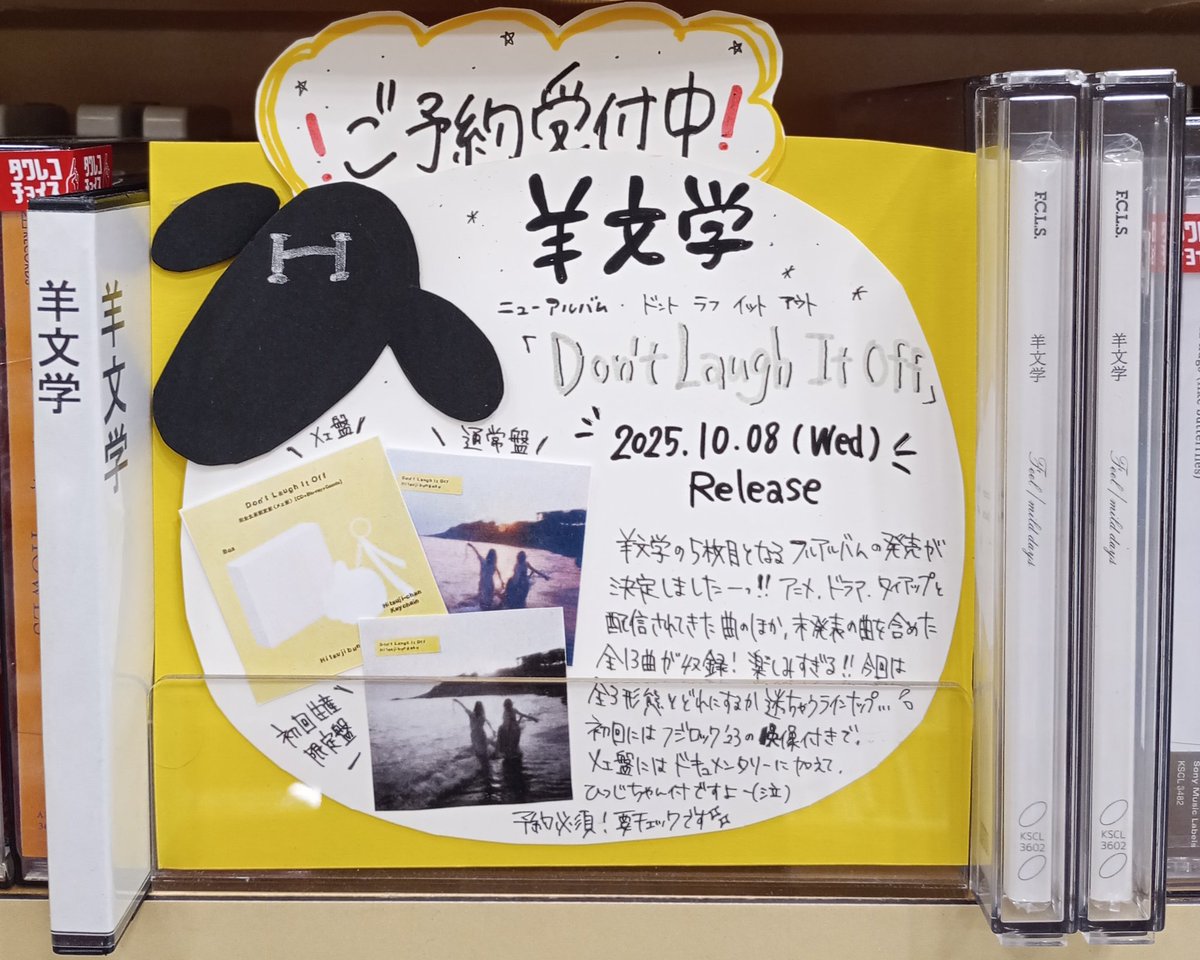 !ご予約受付中!
羊文学
ニューアルバム・ドント ラフ イット アウト
「Don't Laugh It Off」
2025.10.08 (Wed)
Release
メェ盤
通常盤
初回生産
限定盤
Don't Laugh It Off
Box
Hitsuji-chan
Keychain
Don't Laugh It Off
Hitsujibungaku
Don't Laugh It Off
Hitsujibungaku
羊文学の5枚目となるフルアルバムの発売が
決定しましたーっ!! アニメ、ドラマ、タイアップと
配信されてきた曲のほか、未発表の曲を含めた
全13曲が収録! 楽しみすぎる!! 今回は
全3形態とどれにするか迷っちゃうラインナップ…。
初回にはフジロック23の映像付きで、
メェ盤にはドキュメンタリーに加えて、
ひつじちゃん付ですよ〜(泣)
予約必須! 要チェックです
タワレコ
チョイス
タワレコ
チョイス
羊文学
羊文学
F.C.L.S.
羊文学
Feel / mild days
KSCL
3602
F.C.L.S.
羊文学
Feel / mild days
KSCL
3602
Sony Music Labels
KSCL 3482